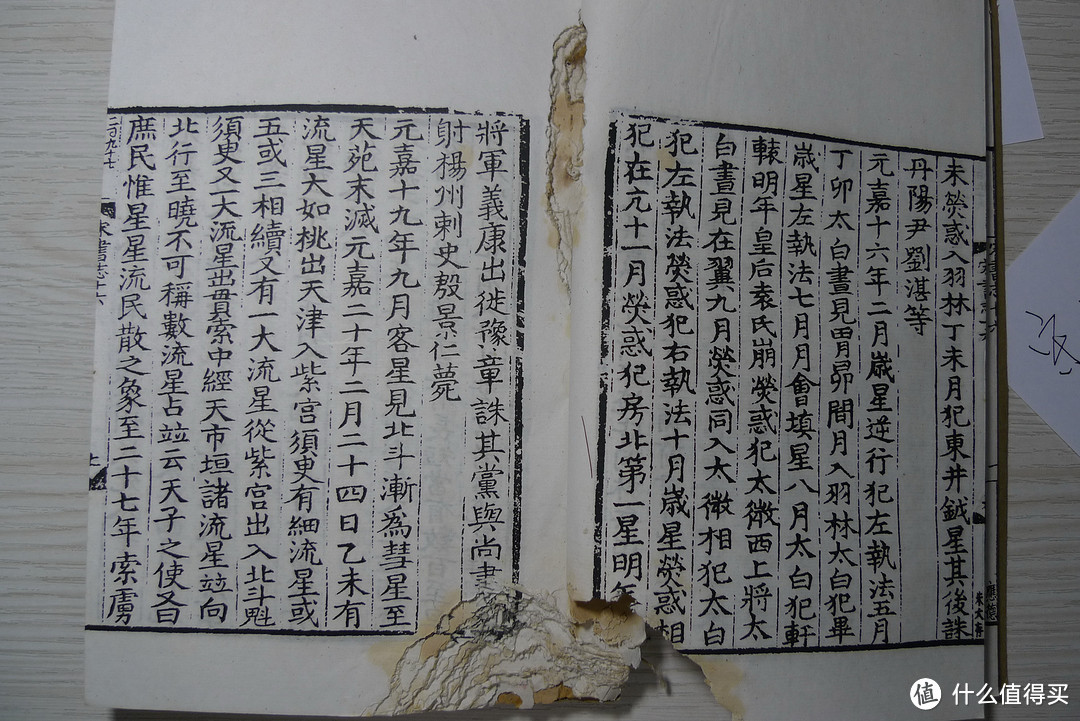 未熒惑入羽林丁未月犯東井鉞星其後誅
丹陽尹劉湛等
元嘉十六年二月歳星逆行犯左執法五月
丁卯太白晝見胃昴間月入羽林太白犯畢
歳星左執法七月月會填星八月太白犯軒
轅明年皇后袁氏崩熒惑犯太微西上將太
白晝見在翼九月熒惑同入太微相犯太白
犯左執法熒惑犯右執法十月歳星熒惑相
犯在亢十一月熒惑犯房北第一星明年
將軍義康出徙豫章誅其黨與尚書
射楊州刺史殷景仁薨
元嘉十九年九月客星見北斗漸爲彗星至
天苑末滅元嘉二十年二月二十四日乙未有
流星大如桃出天津入紫宫須臾有細流星或
五或三相續又有一大流星從紫宫出入北斗魁
須臾又一大流星出貫索中經天市垣諸流星並向
北行至曉不可稱數流星占並云天子之使又曰
庶民惟星星流民散之象至二十七年索虜
宋書志十六
值 什么值得买